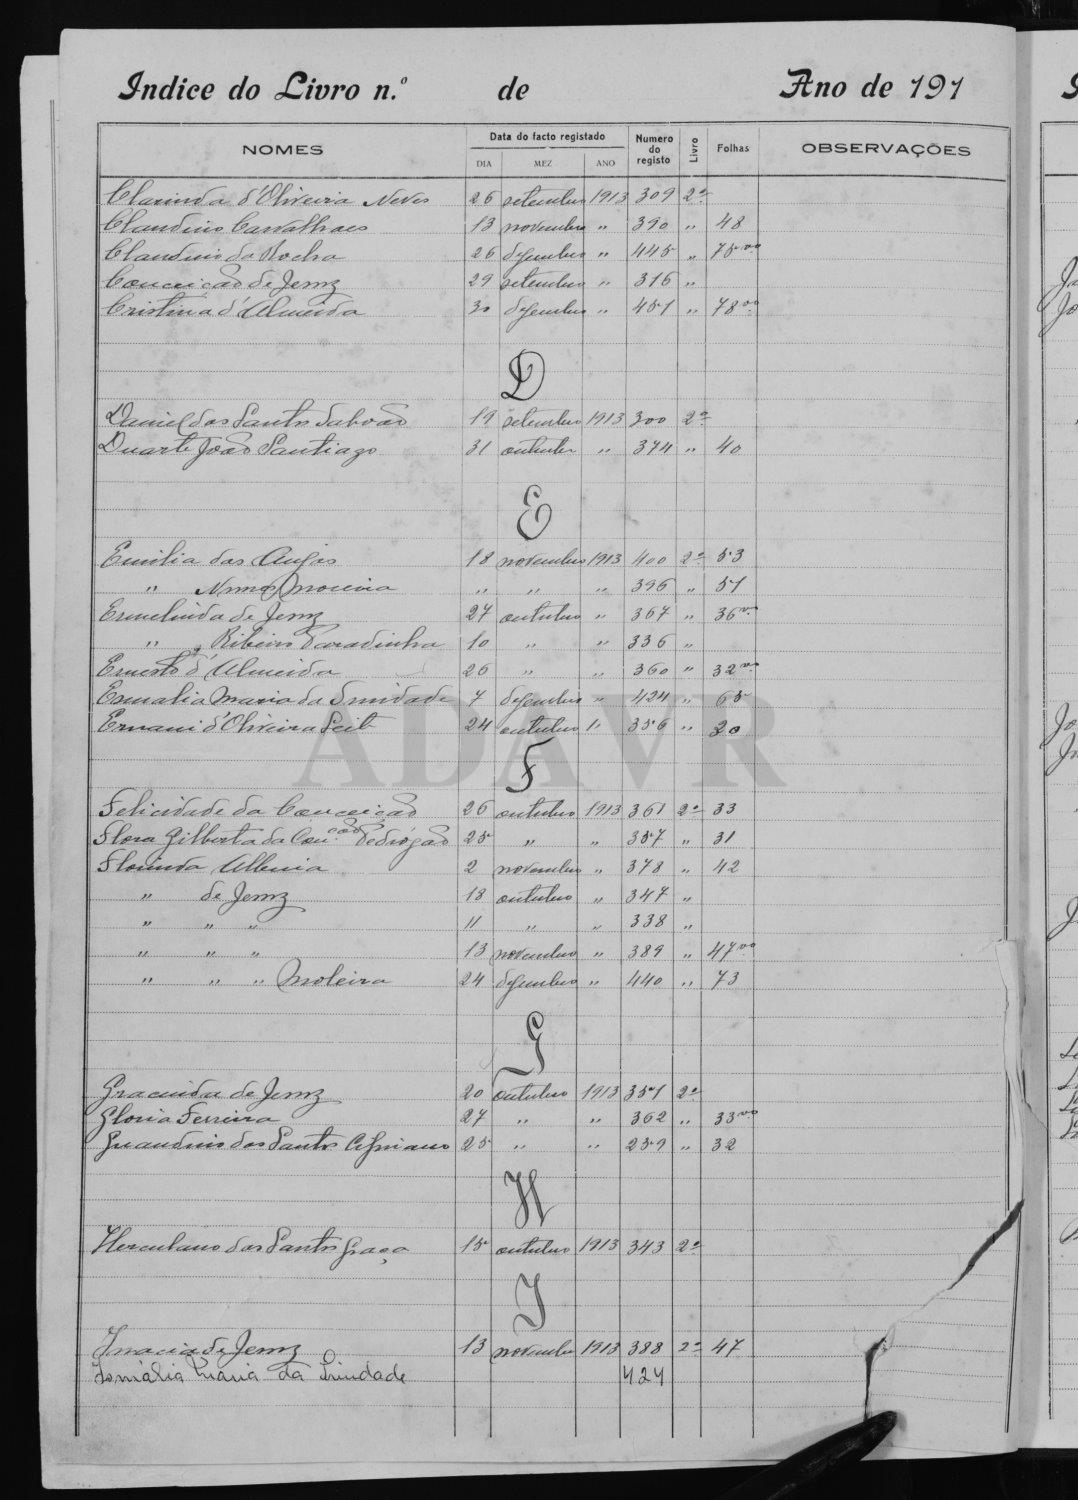 Indice do Livro n.º de Ano de 191
NOMES Data do facto registado Numero do registo Livro Folhas OBSERVAÇÕES
DIA MEZ ANO
Clarinda d'Oliveira Neves 26 setembro 1913 309 2º
Claudino Carvalhaes 13 novembro " 390 " 48
Claudino da Rocha 26 dezembro " 445 " 75vo
Conceição de Jesus 29 setembro " 316 "
Cristina d'Almeida 30 dezembro " 451 " 78vo
D
Daniel dos Santos 19 setembro 1913 300 2º
Duarte João Santiago 31 outubro " 374 " 40
E
Emilia dos Anjos 18 novembro 1913 400 2º 53
" Nunes Moreira " " " 396 " 51
Ermelinda de Jesus 27 outubro " 367 " 36vo
" Ribeiro Paradinha 10 " " 336 "
Ernesto d'Almeida 26 " " 360 " 32vo
Esmalia Maria da Trindade 7 dezembro " 424 " 65
Ernani d'Oliveira Leite 24 outubro " 356 " 30
F
Felicidade da Conceição 26 outubro 1913 361 2º 33
Flora Gilberta da Con.cão Pedrógão 25 " " 357 " 31
Florinda Albina 2 novembro " 378 " 42
" de Jesus 18 outubro " 347 "
" " " 11 " " 338 "
" " " 13 novembro " 389 " 47vo
" " " Moleira 24 dezembro " 440 " 73
G
Gracinda de Jesus 20 outubro 1913 351 2º
Gloria Ferreira 27 " " 362 " 33vo
Graudinio dos Santos Cipriano 25 " " 259 " 32
H
Herculano dos Santos Graça 15 outubro 1913 343 2º
I
Inacia de Jesus 13 novembro 1913 388 2º 47
Ismália Maria da Trindade 424
ADAVR